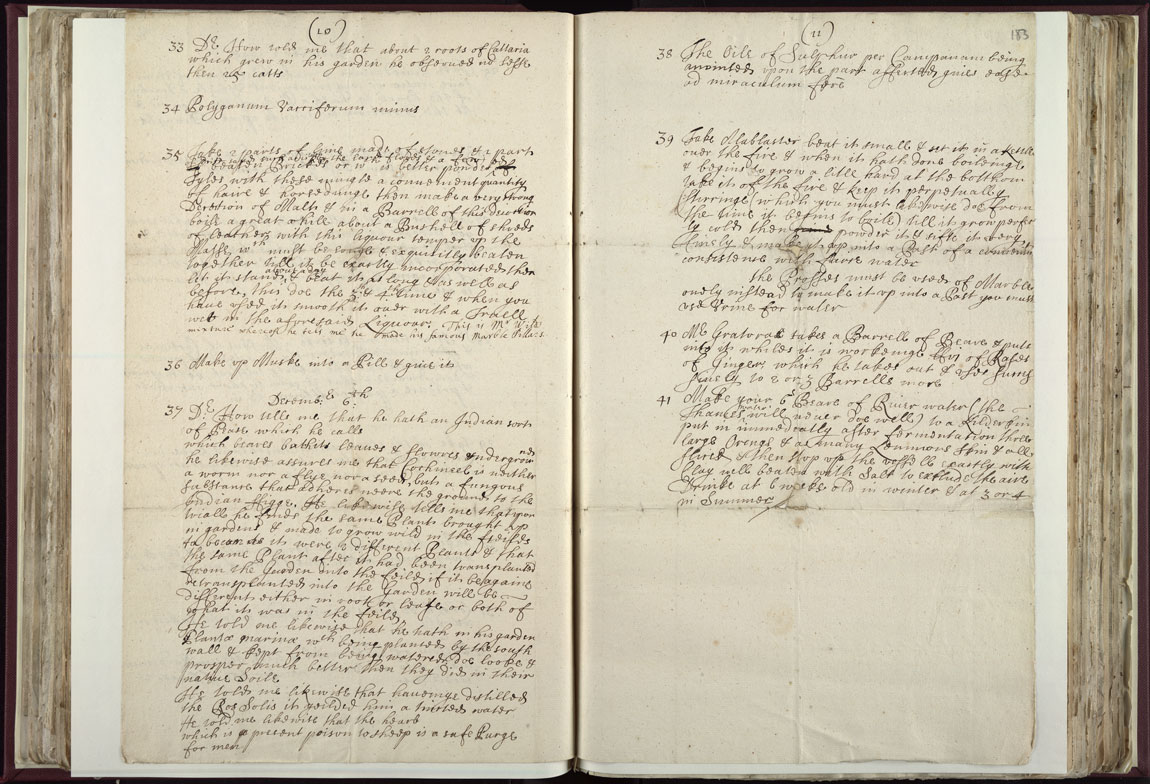 (10)
33 Dr. How told me that about 2 roots of Cattaria
which grew in his garden he observed no lesse
then 25 catts
34 Polyganum Vacciferum minus
35 Take 2 parts of lime made of stones & 1 part
Tyles with these mingle a convenient quantity
of haire & horsedunge then make a very strong
Decoction of Malts & in a Barrell of this decoction
boile a great while about a Bushell of shreds
of leathers with this liquour temper up the
Masse wch must be &  exquisitely beaten
together till it be exactly incorporated then
let it stand a day & beat it as long & as well as
before, this doe the 3d & 4th time & when you
have used it smooth it over with a Truell
wett in the aforesaid Liquour. This is Mr
mixture whereof he tels me he made his famous Marble Pillars
36 Make up Muske into a Pill & give it
December 6th
37 Dr. How tells me that he hath an Indian sort
of Pease which he calls
which beares bothe leaves & flowres & undergrownd
he likewise assures me that Cochineel is neither
a worm nor a flye nor a seed, but a fungous
substance that adheres neere the ground to the
Indian Figge. He likewise tells me that upon
triall he finds the same Plant brought up
in gardens & made to grow wild in the feilds
to become as it were 2 different Plants & that
the same Plant after it had been transplanted
from the Garden into the feild if it be againe
retransplanted into the Garden will be
different either in root or leafe or both of
what it was in the feild,
He told me likewise that he hath in his garden
Plantæ marinæ wch being planted by the south
wall & kept from being watered doe looke &
prosper much better then they did in their
native Soile
He told me likewise that haveinge distilled
the Ros Solis it yeilded him a tincted water
He told me likewise that the hearb
which is a present poison to sheep is a safe Purge
for men
(11)
183
38 The Oile of Sulphur per Campanam being
anointed upon the part affected gives ease
ad miraculum fere
39 Take Alablaster beat it small & set it in a kettle
over the fire & when it hath done boileinge
& begins to grow a litle hard at the bottom
take it of the fire & keep it perpetually
stirringe (which you must likewise doe from
the time it begins to boile) till it grow perfect
ly cold then powder it & sifte it very
finely & make it up into a Past of a convenient
consistence with faire water
the Prosses must be used of Marble
onely instead to make it up into a Past you must
use Urine for water
40 Mr. Gratorak takes a Barrell of Beare & puts
into it whiles it is workeinge of Rases
of Ginger, which he takes out &
to 2 or 3 Barrells more
41 Make your 6s Beare of River water (the
Thames water will never doe well) to a Kilderkin
put in immediately after fermentation three
large Orengs & as many Lemmons skin & all
sliced & then stop up the vessell exactly with
Clay well beaten with Salt to exclude the aire
Drinke at 6 weeks old in winter & at 3 or 4
in Summer